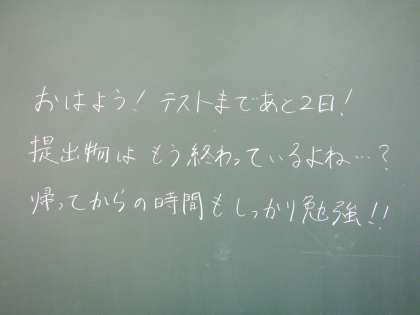 おはよう！テストまであと2日！
提出物は もう終わっているよね…？
帰ってからの時間もしっかり勉強！！